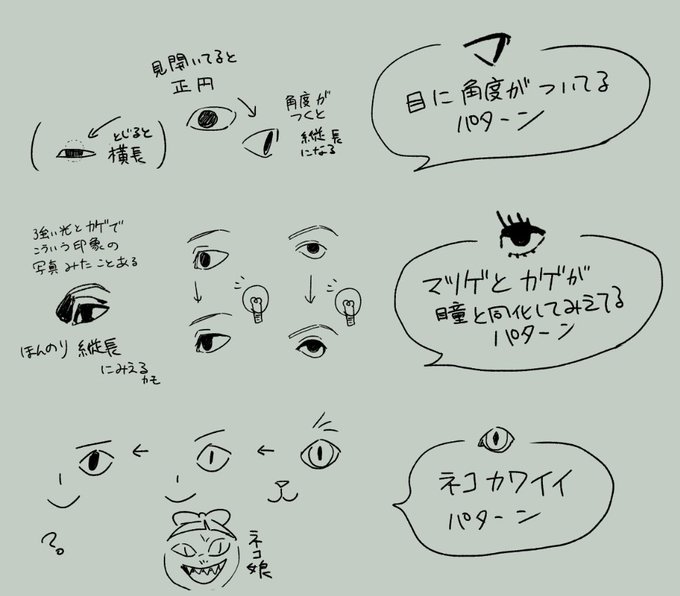 見開いてると
正円
とじると
横長
角度が
つくと
縦長
になる
目に角度がついてる
パターン
強い光とカゲで
こういう印象の
写真みたことある
ほんのり縦長
にみえる
かも
マツゲとカゲが
瞳と同化してみえてる
パターン
ネコカワイイ
パターン
?
ネコ娘